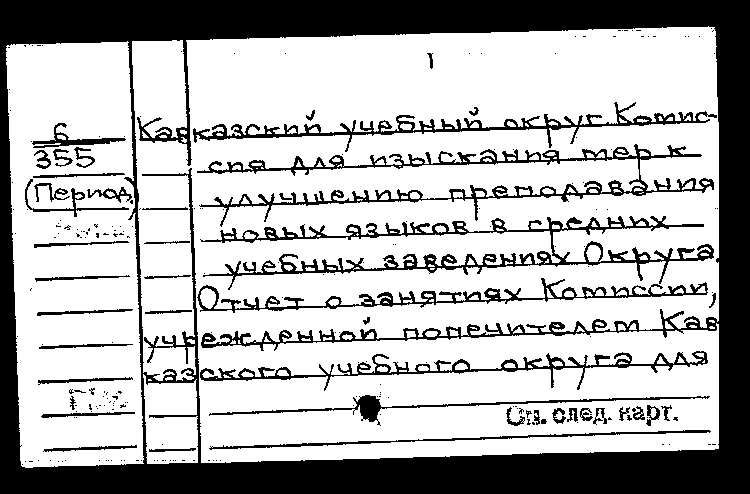 1
6
355
(Период.)
Кавказский учебный округ. Комис-
сия для изыскания мер к
улучшению преподавания
новых языков в средних
учебных заведениях Округа.
Отчет о занятиях Комиссии,
учрежденной попечителем Кав
казского учебного округа для
См. след. карт.